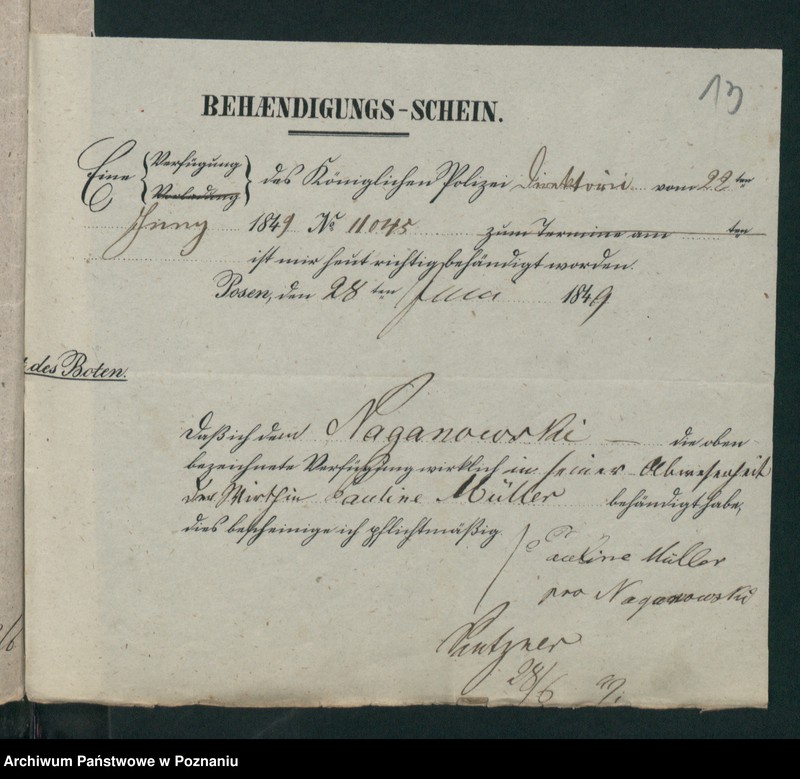 13
BEHÆNDIGUNGS-SCHEIN.
Eine {Verfügung
Vorladung} des Königlichen Polizei Direktorii vom 22 ten
Juny 1849 No 11045 zum Termine am ten
ist mir heut richtig behändigt worden.
Posen, den 28 ten Juni 1849
des Boten.
Daß ich dem Naganowski — die oben
bezeichnete Verfügung wirklich in seiner Abwesenheit
der Wirthin Pauline Müller behändigt habe,
dies bescheinige ich pflichtmäßig.
Pauline Müller
pro Naganowski
28/6
Archiwum Państwowe w Poznaniu